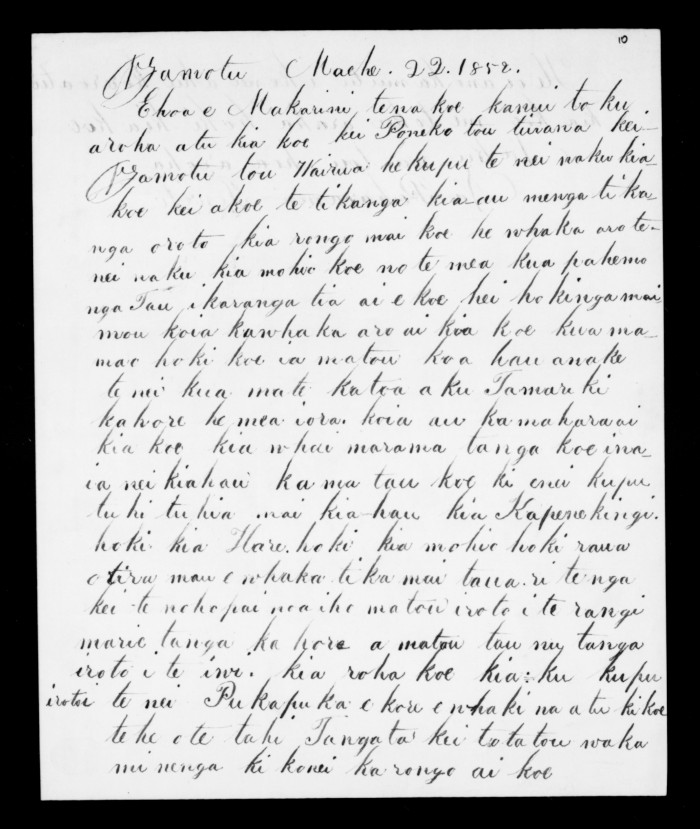 10
Ngamotu Maehe. 22. 1852.
Ehoa e Makarini tena koe kanui to ku
aroha atu kia koe kei Poneke tou tinana kei-
Ngamotu tou Wairua he kupu te nei naku kia-
koe kei a koe te tikanga kia-au menga tika-
nga oroto kia rongo mai koe he whaka aro te-
nei naku kia mohio koe no te mea kua pahemo
nga Tau i karanga tia ai e koe hei hokinga mai-
mou koia kawhaka aro ai kia koe kua ma-
mao hoki koe ia matou ko a hau anake
te nei kua mate katoa a ku Tamariki
kahore he mea iora. koia au ka mahara ai
kia koe kia whai marama tanga koe ina-
ia nei kiahau ka ma tau koe ki enei kupu
tuhi tuhia mai kia-hau kia Kapene kingi.
hoki kia Hare. hoki kia mohio hoki raua
otira mau e whaka tika mai taua. ri te nga
kei te noho pai noa iho matou iroto i te rangi
marie tanga ka hore a matou tau nu tanga
iroto i te iwi. kia roha koe kia: ku kupu
irotoi te nei Pukapuka e kore e whaki na atu ki koe
te he o te tahi Tangata kei to tatou waka
mi nenga ki konei ka rongo ai koe